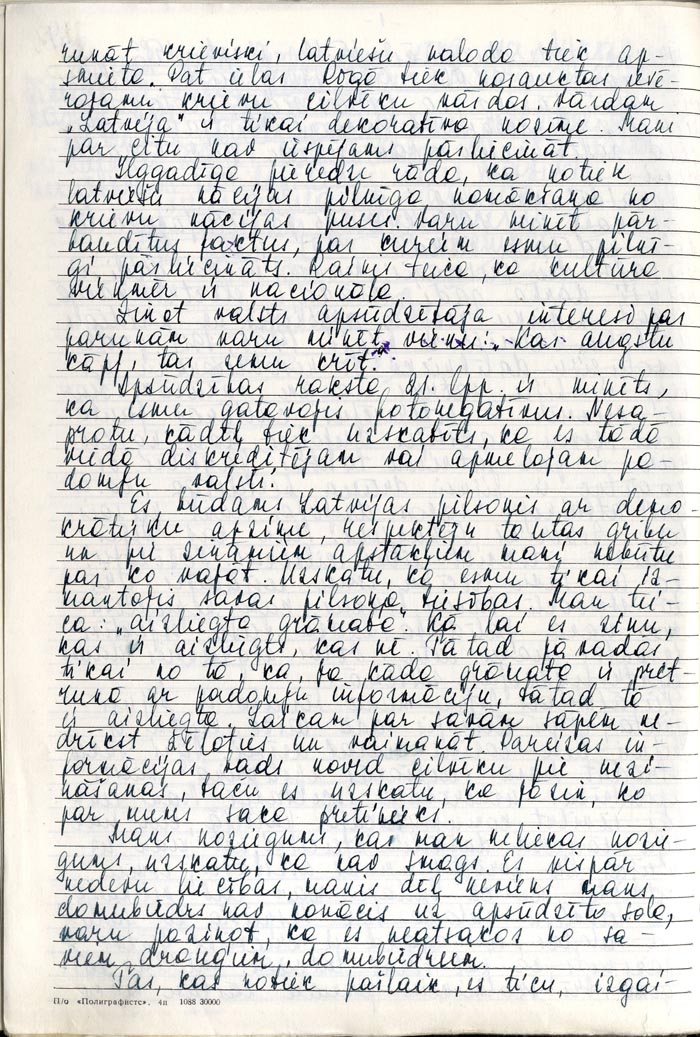 runāt krieviski, latviešu valoda tiek ap-
smieta. Pat ielas Rīgā tiek nosauktas ievē-
rojamu krievu cilvēku vārdos. Vārdam
„Latvija" ir tikai dekoratīva nozīme. Mani
par citu nav iespējams pārliecināt.
Ilggadīga pieredze rāda, ka notiek
latviešu nācijas pilnīga nomākšana no
krievu nācijas puses. Varu minēt pār-
baudītus faktus, par kuriem esmu pilnī-
gi pārliecināts. Rainis teica, ka kultūra
vienmēr ir nacionāla.
Zinot valsts apsūdzētāja interesi par
parunām varu minēt vienu: „Kas augstu
kāpj, tas zemu krīt."
Apsūdzības raksta 21. lpp. ir minēts,
ka esmu gatavojis fotonegatīvus. Nesa-
protu, kādēļ tiek uzskatīts, ka es tādā
veidā diskreditējam vai apmelojam pa-
domju valsti.
Es, būdams Latvijas pilsonis ar demo-
krātisku apziņu, respektēju tautas gribu
un pie zināmiem apstākļiem mani nebūtu
par ko vajāt. Uzskatu, ka esmu tikai iz-
mantojis savas pilsoņa tiesības. Man tei-
ca: „aizliegta grāmata". Kā lai es zinu,
kas ir aizliegts, kas nē. Tā tad jāvadās
tikai no tā, ka, ja kāda grāmata ir pret-
runā ar padomju informāciju, tā tad tā
ir aizliegta. Laikam par savām sāpēm ne-
drīkst žēloties un vaimanāt. Pareizas in-
formācijas bads noved cilvēku pie nezi-
nāšanas, taču es uzskatu, ka jāzin, ko
par mums saka pretinieki.
Mans noziegums, kas man neliekas nozie-
gums, uzskatu, ka nav smags. Es vispār
nedevu liecības, manis dēļ neviens mans
domubiedrs nav nonācis uz apsūdzēto sola,
varu paziņot, ka es neatsakos no sa-
viem draugiem, domubiedriem.
Tas, kas notiek pašlaik, es ticu, izgai-
П/о «Полиграфист». 4п 1088 30000